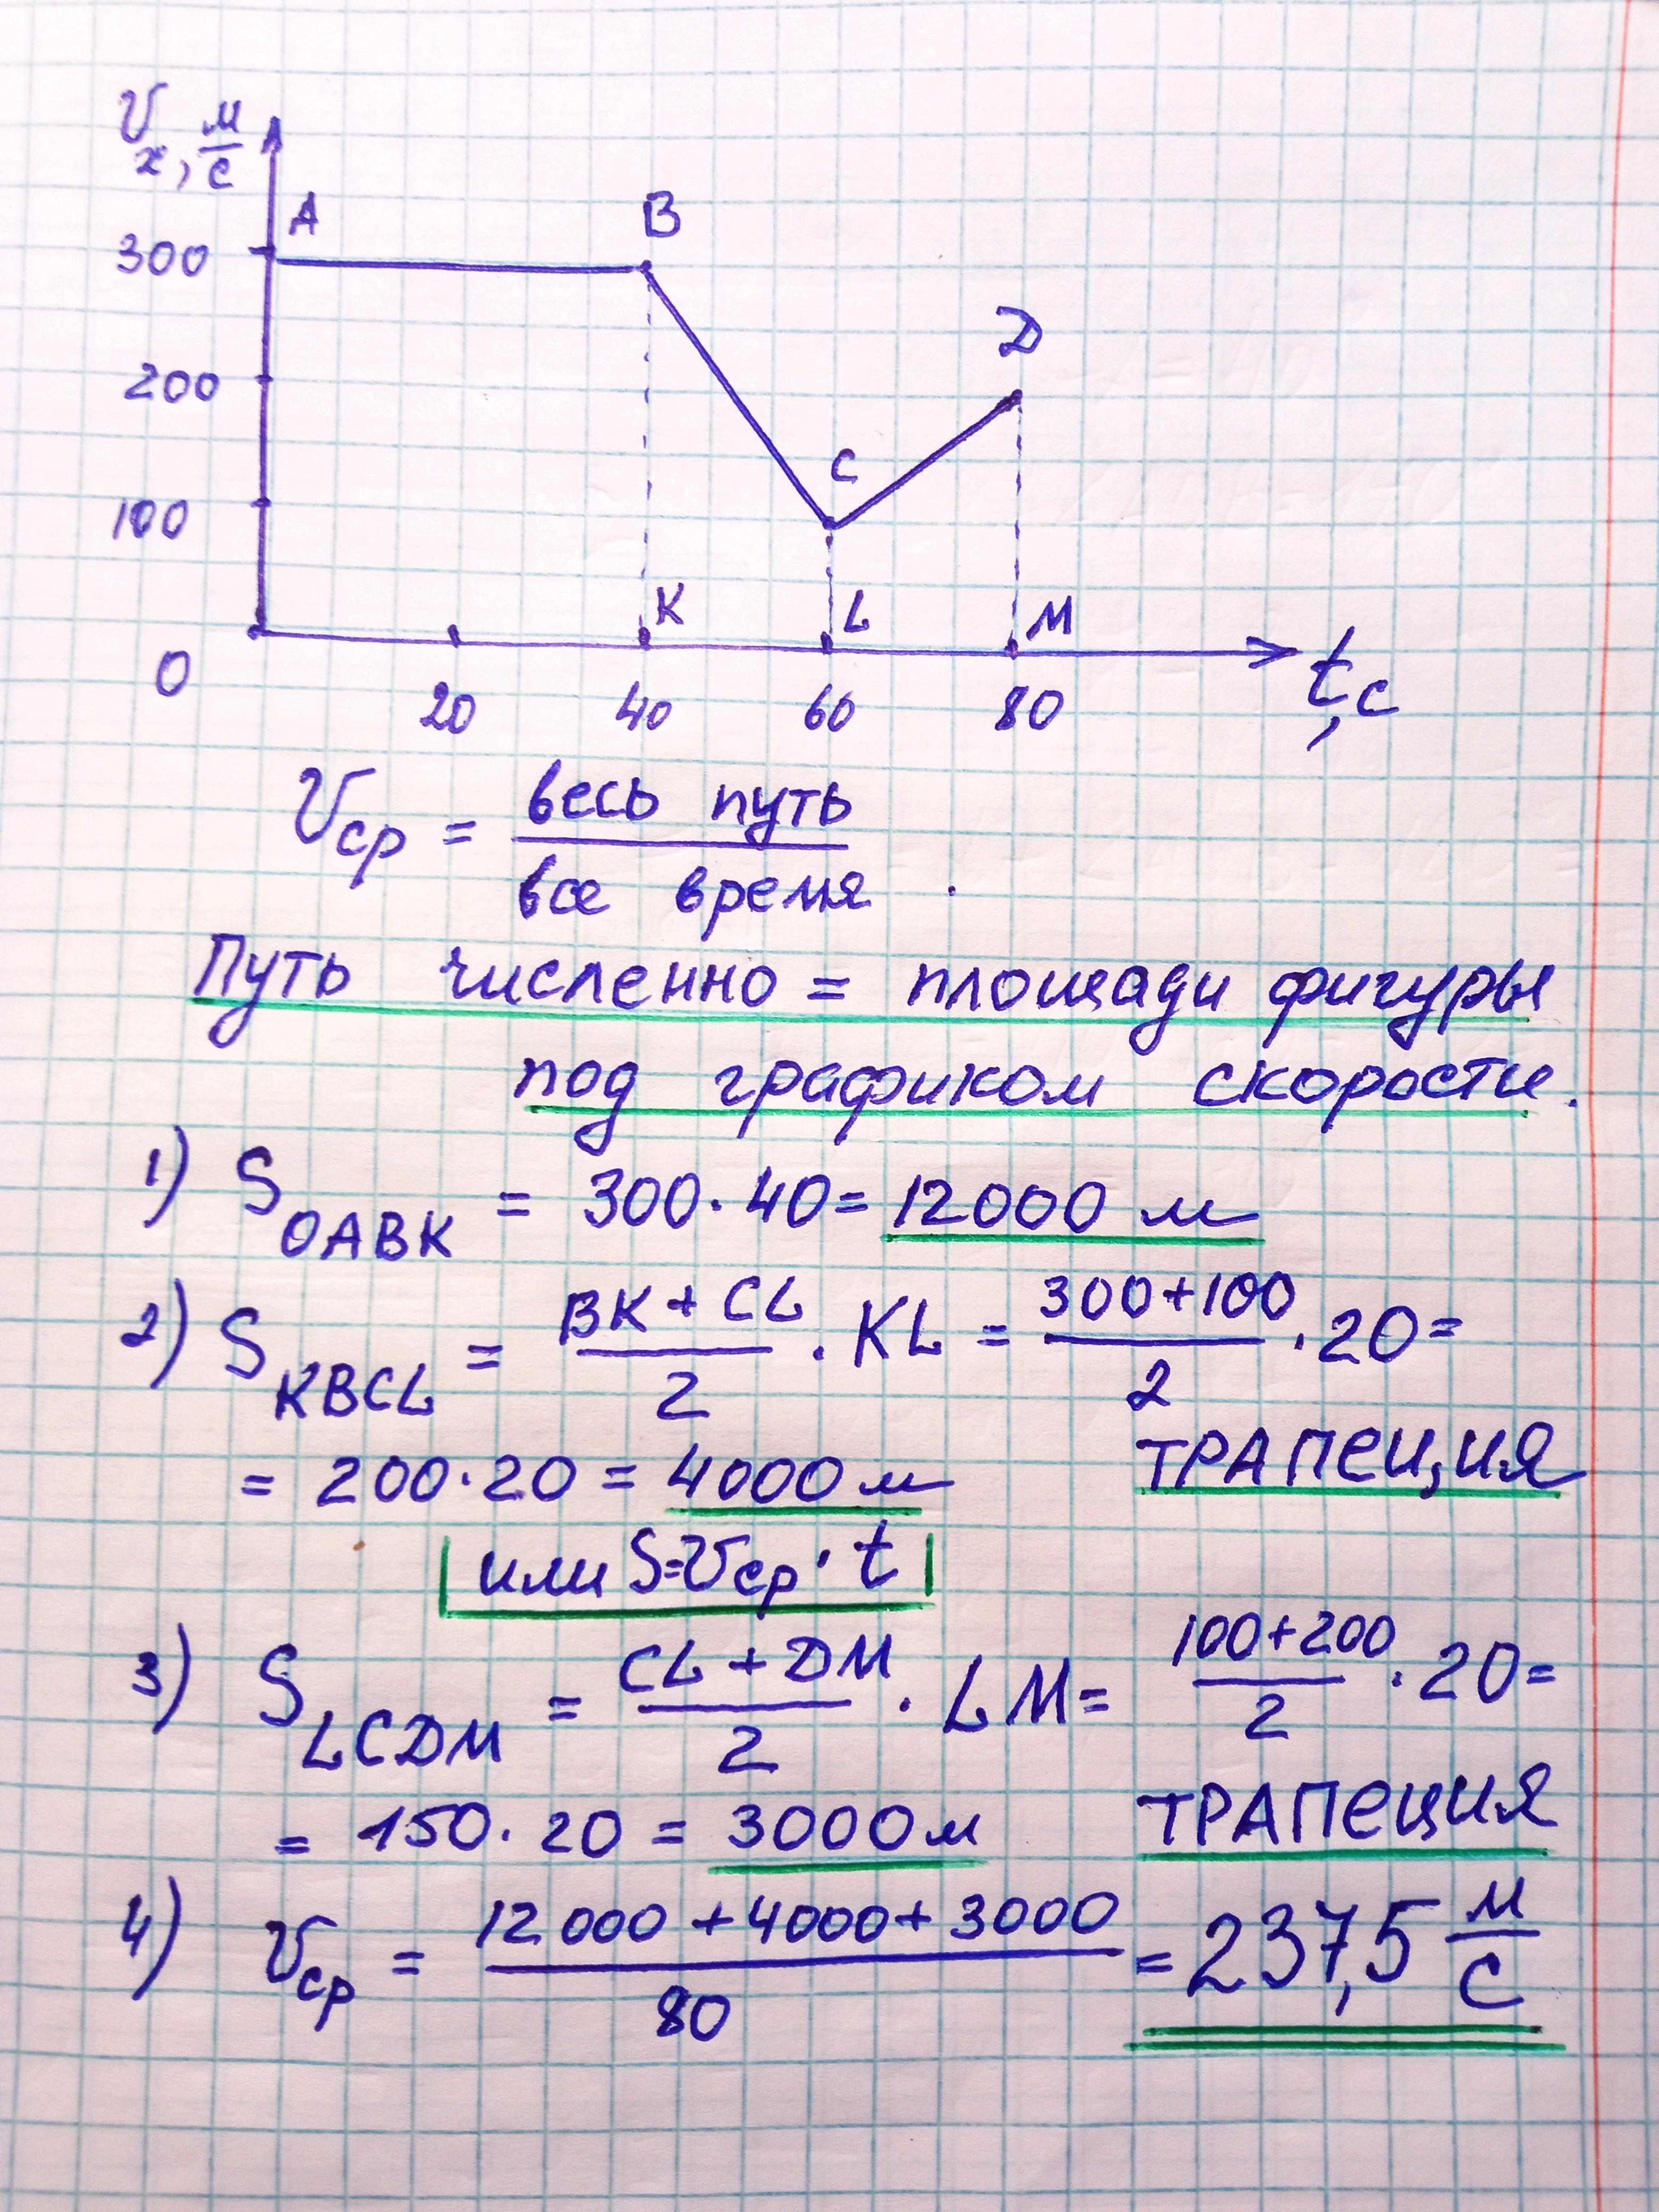 υx, м/с
A
B
300
D
200
C
100
K
L
M
0
20
40
60
80
t, c
υср = весь путь / все время .
Путь численно = площади фигуры
под графиком скорости.
1) S OABK = 300 · 40 = 12000 м
2) S KBCL = BK + CL / 2 · KL = 300+100 / 2 · 20 =
= 200 · 20 = 4000 м ТРАПЕЦИЯ
или S=υср · t
3) S LCDM = CL + DM / 2 · LM = 100+200 / 2 · 20 =
= 150 · 20 = 3000 м ТРАПЕЦИЯ
4) υср = 12 000 + 4000 + 3000 / 80 = 237,5 м/с